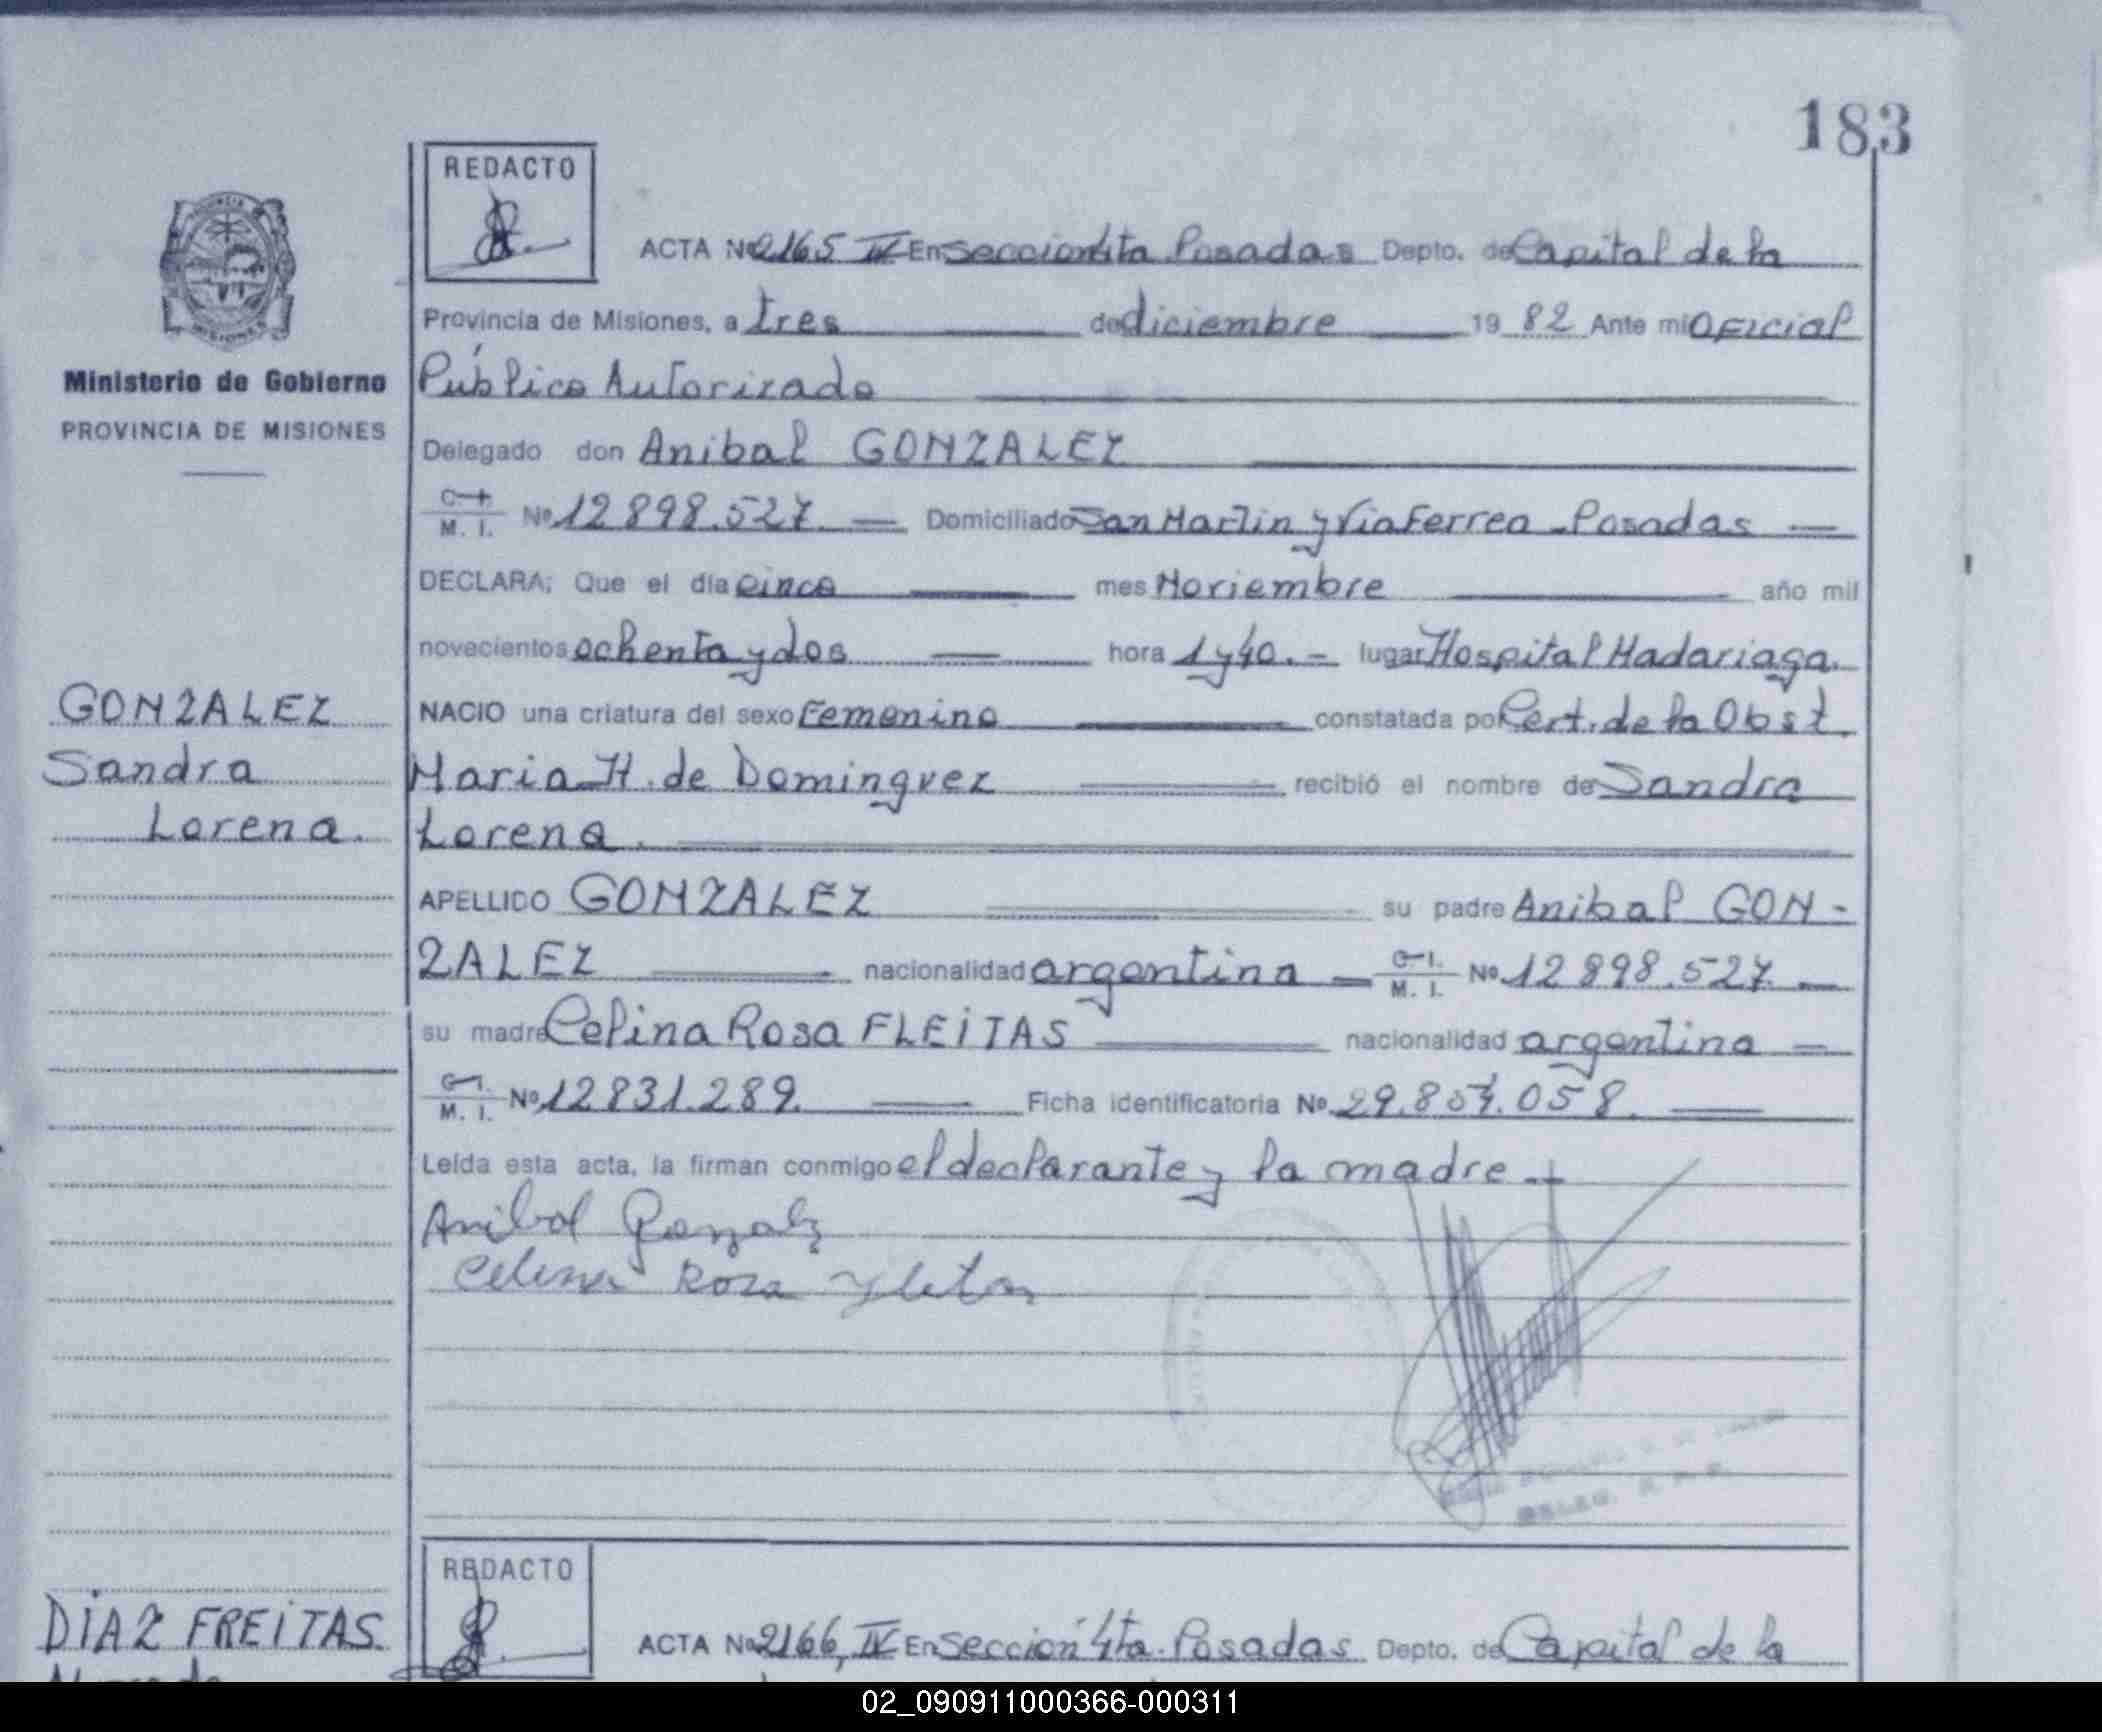 183
REDACTO
ACTA Nº 2165 IV En Sección 4ta Posadas Depto. de Capital de la
Provincia de Misiones, a tres de diciembre 19 82 Ante mi Oficial
Público Autorizado
Ministerio de Gobierno
PROVINCIA DE MISIONES
Delegado don Anibal GONZALEZ
C. I. M. I. Nº 12898.527. Domiciliado San Martin y Via Ferrea - Posadas
DECLARA; Que el día cinco mes Noviembre año mil
novecientos ochenta y dos hora 1 y 40. - lugar Hospital Madariaga.
GONZALEZ
Sandra
Lorena.
NACIO una criatura del sexo Femenino constatada por Cert. de la Obst.
Maria H. de Dominguez recibió el nombre de Sandra
Lorena.
APELLIDO GONZALEZ su padre Anibal GON-
ZALEZ nacionalidad argentina C. I. M. I. Nº 12898.527.
su madre Celina Rosa FLEITAS nacionalidad argentina
C. I. M. I. Nº 12831.289. Ficha identificatoria Nº 29.854.058.
Leída esta acta, la firman conmigo el declarante y la madre.-
Anibal Gonzalez
Celina Rosa Fleitas
DIAZ FREITAS
REDACTO
ACTA Nº 2166, IV En Sección 4ta. Posadas Depto. de Capital de la
02_090911000366-000311